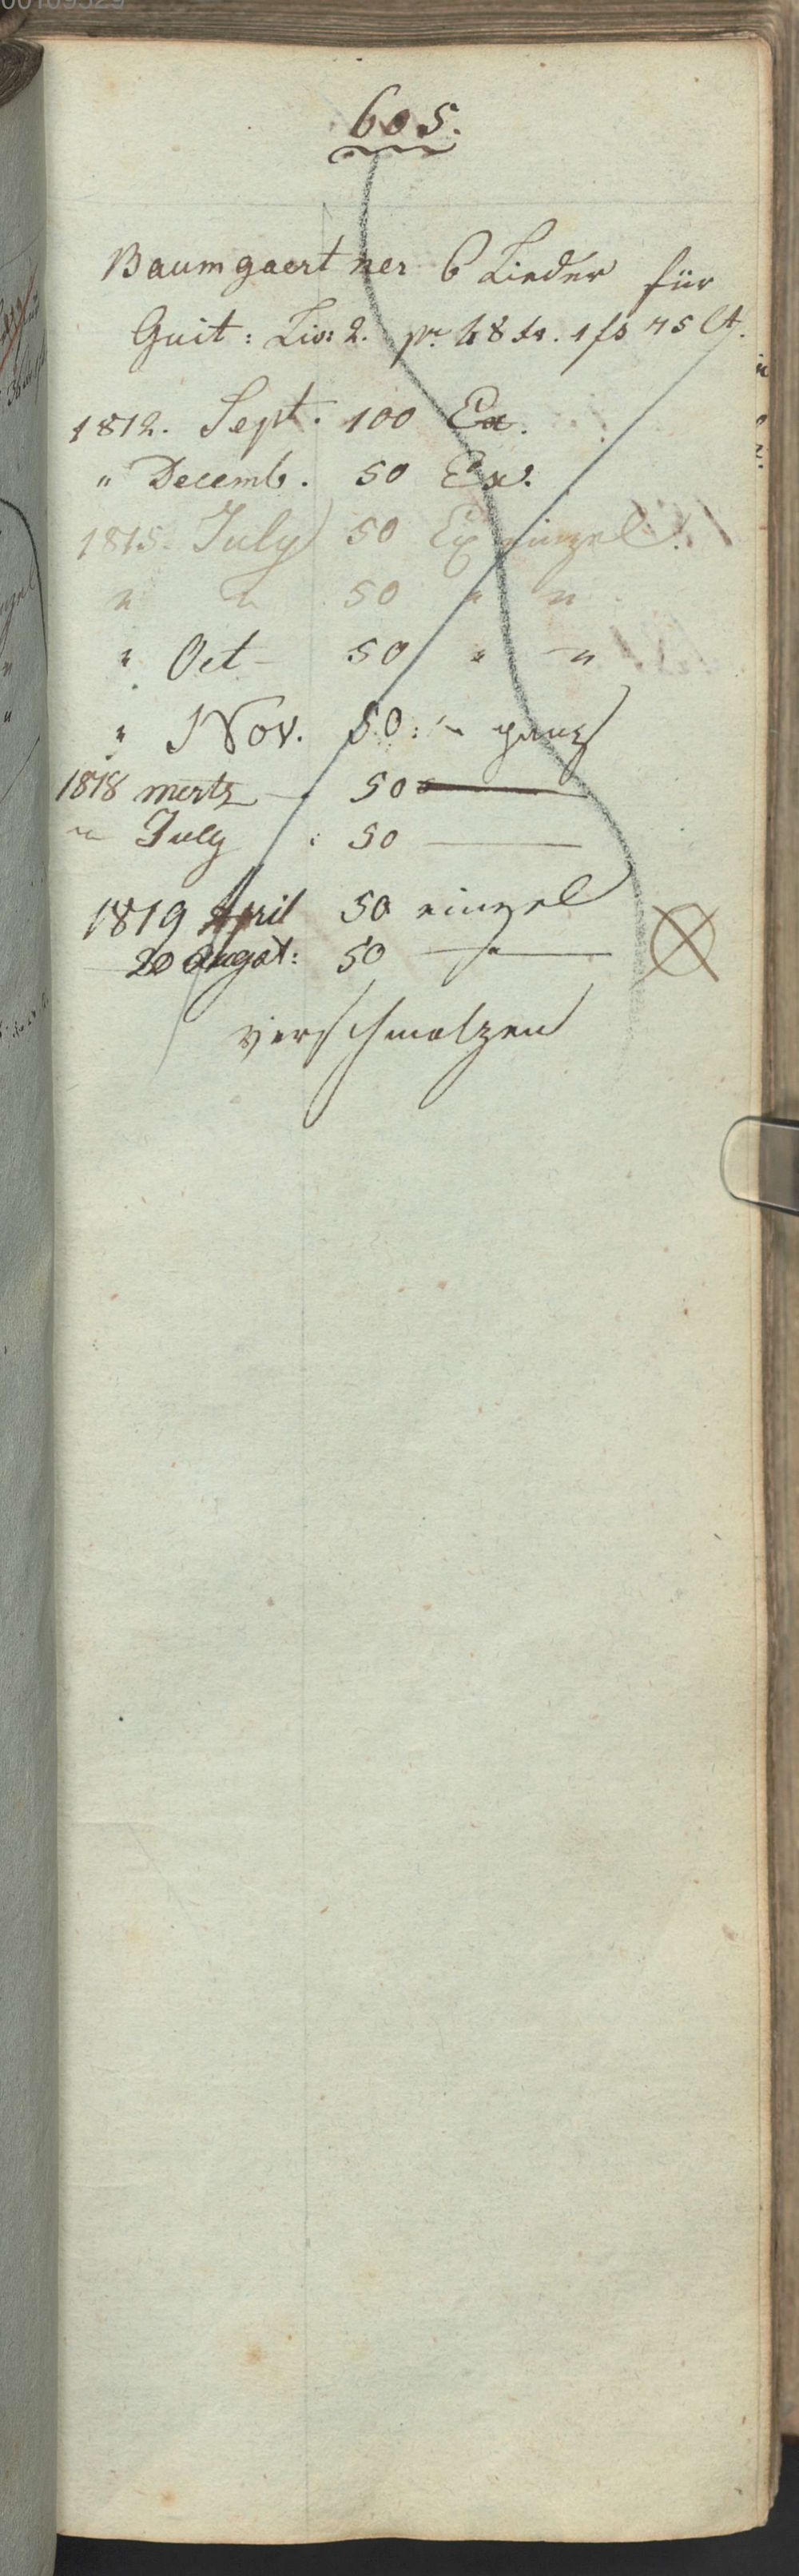 605.
Baumgaertner 6 Lieder für
Guit: Liv: 2. pr. 48 Xr. 1 fs 75 Ct.
1812. Sept. 100 Ex.
" Decemb. 50 Ex.
1815. July 50 Ex einzel.
" " 50 " "
" Oct - 50 " - "
" Nov. 50: - ganz
1818 mertz - 50 -
" July : 50 -
1819 April 50 einzel
20 Augst: 50 - " -
verschmolzen